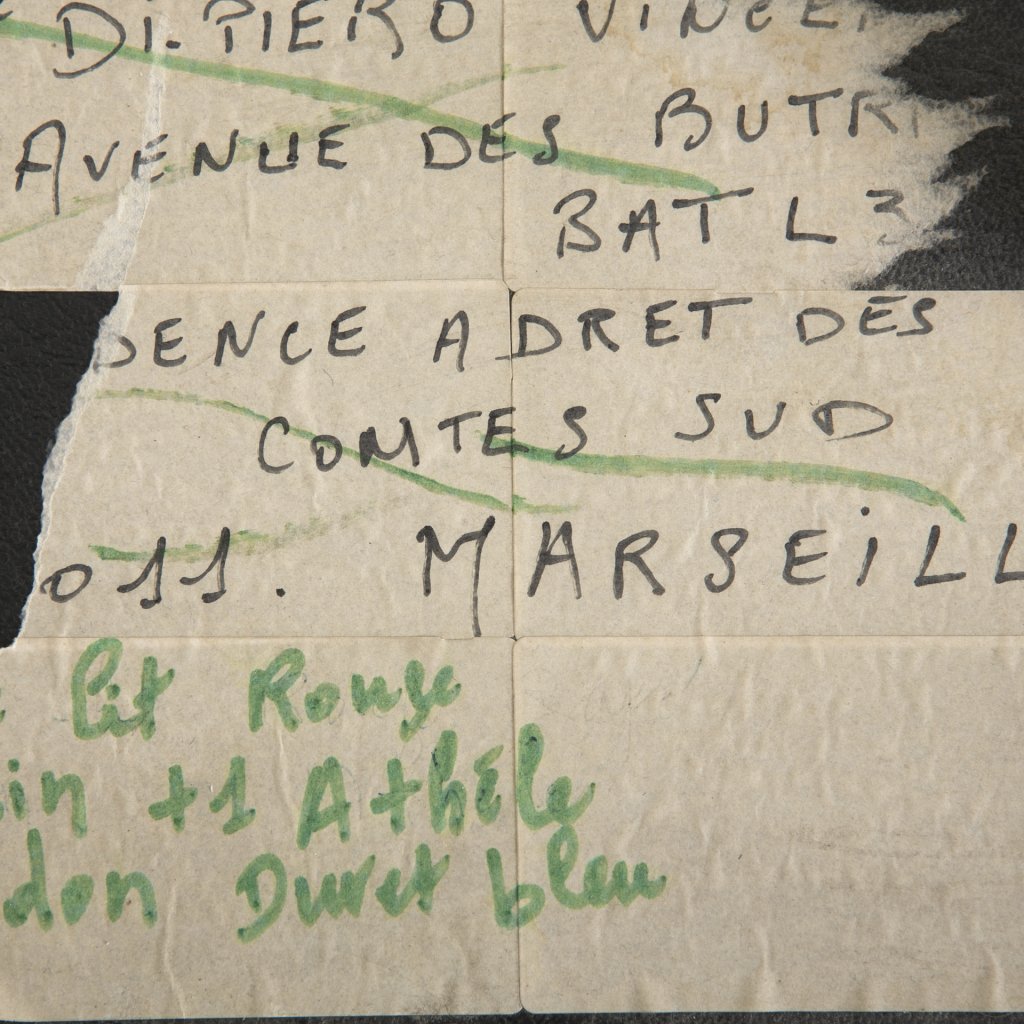 DI.PIERO VINCE
AVENUE DES BUTR
BAT L 3
DENCE ADRET DES
COMTES SUD
011. MARSEILL
lit Rouge
in +1 Athêle
don Duvet bleu